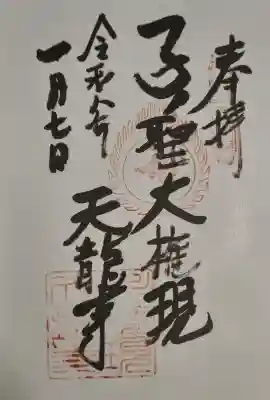 奉拝
子ノ聖大権現
天龍寺
令和六年
一月七日